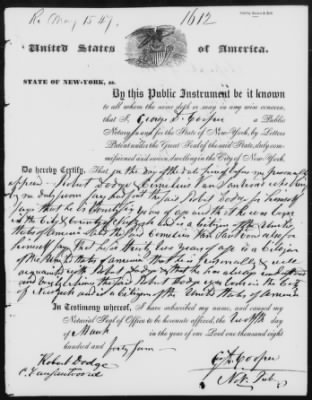 Rc May 15 47.
1612
United States of America.
STATE OF NEW-YORK, ss.
By this Public Instrument be it known
to all whom the same doth or may in any wise concern,
that I, George D. Cooper a Public
Notary in and for the State of New-York, by Letters
Patent under the Great Seal of the said State, duly com-
missioned and sworn, dwelling in the City of New-York,
Do hereby Certify, That on the day of the date hereof before me personally
appeared Robert Dodge & Cornelius Van Santvoord who being by
me duly sworn say and first the said Robert Dodge for himself
says that he is twenty years of age and that he was born
in the City & County of New York and is a Citizen of the United
States of America And the said Cornelius Van Santvoord also for
himself says that he is thirty two years of age is a Citizen
of the United States of America that he is personally & well
acquainted with Robert Dodge & that he has always understood
and verily believes the said Robert Dodge was born in the City
of New York and is a Citizen of the United States of America
In Testimony whereof, I have subscribed my name, and caused my
Notarial Seal of Office to be hereunto affixed, the twelfth day
of March in the year of our Lord one thousand eight
hundred and forty seven
Robert Dodge
C. Vansantvoord
G D Cooper
Not. Pub.